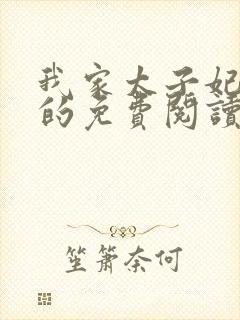 我家太子妃
的免費閱讀
笙簫奈何